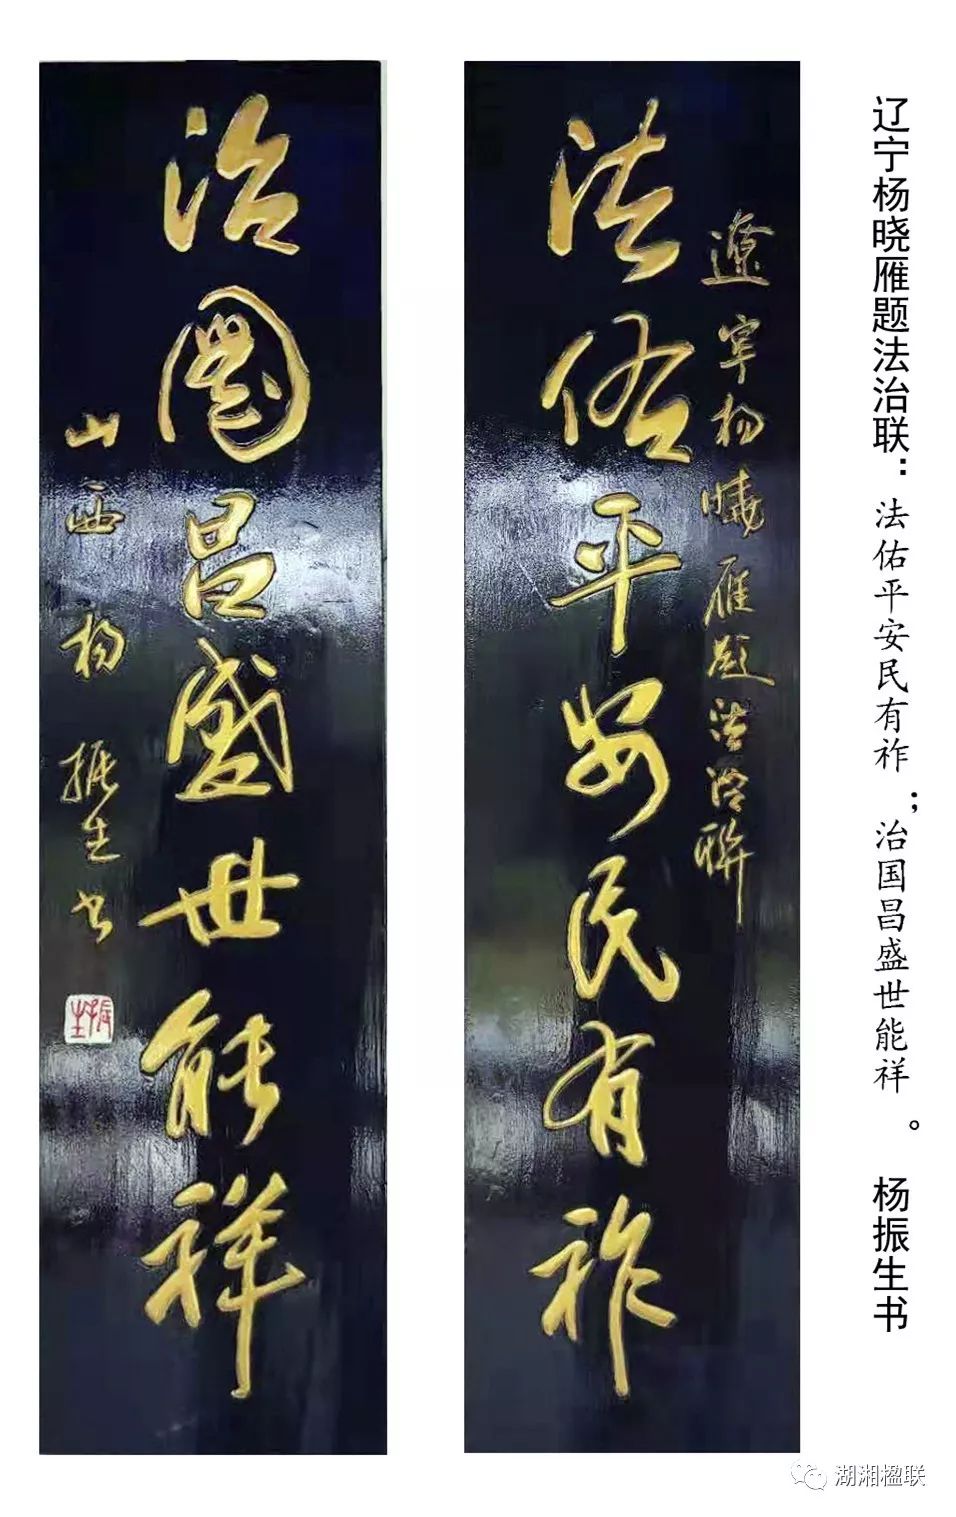 辽宁杨晓雁题法治联：法佑平安民有祚；治国昌盛世能祥。 杨振生书
遼寜杨曉雁题法治聨
法佑平安民有祚
治國昌盛世能祥
山西杨振生书
振生
湖湘楹联